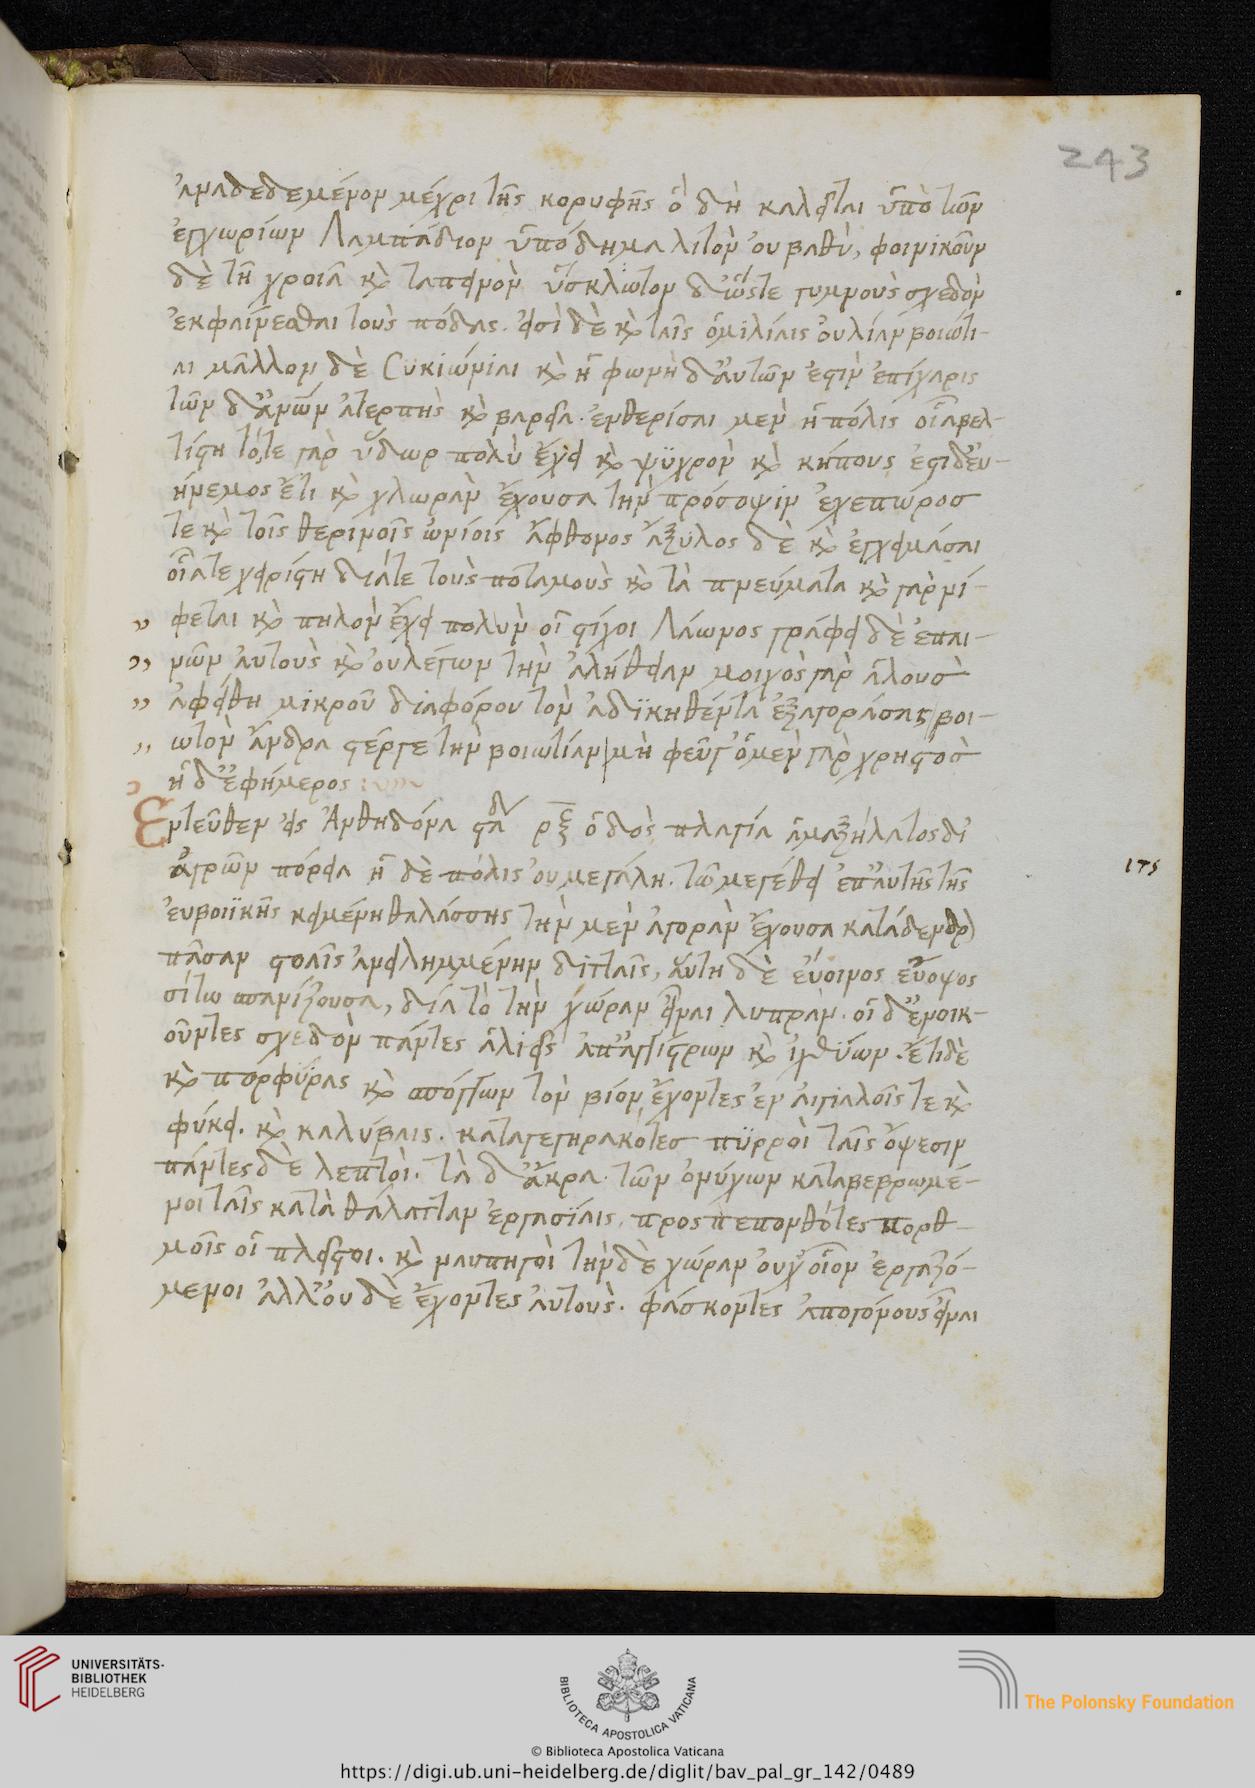 243
ἀναδεδεμένον μέχρι τῆς κορυφῆς ὃ δὴ καλεῖται ὑπὸ τῶν
ἐγχωρίων Λαμπάδιον ὑπόδημα λιτὸν οὐ βαθὺ, φοινικοῦν
δὲ τῆ χροιᾶ κὶ ταπεινὸν ὑσκλωτὸν δ' ὥστε γυμνοὺς σχεδὸν
ἐκφαίνεσθαι τοὺς πόδας. εἰσὶ δὲ κὶ ταῖς ὁμιλίαις οὐ λίαν βοιώτι-
αι μᾶλλον δὲ Σικυώνιαι κὶ ἡ φωνὴ δ' αὐτῶν ἐστὶν ἐπίχαρις
τῶν δ' ἀνων ἀτερπὴς κὶ βαρεῖα. ἐνθερίσαι μὲν ἡ πόλις οἵα βελ-
τίστη τό,τε γὰρ ὕδωρ πολὺ ἔχει κὶ ψυχρὸν κὶ κήπους ἐστὶ δ' εὐ-
ήνεμος ἔτι κὶ χλωρὰν ἔχουσα τὴν πρόσοψιν
τε κὶ τοῖς θερινοῖς ὠνίοις ἄφθονος ἄξυλος δὲ κὶ ἐγχειμάσαι
οἵατε χειρίστη διάτε τοὺς ποταμοὺς κὶ τὰ πνεύματα κὶ γὰρ νί-
” φεται κὶ πηλὸν ἔχει πολὺν οἱ στίχοι Λάωνος γράφει δὲ ἐπαι-
” νῶν αὐτοὺς κὶ οὐ λέγων τὴν ἀλήθειαν μοιχὸς γὰρ ἁλοὺσ
” ἀφείθη μικροῦ διαφόρου τὸν ἀδικηθέντα ἐξαγοράσας βοι-
” ωτὸν ἄνδρα στέργε τὴν βοιωτίαν μὴ φεῦγ' ὁ μὲν γὰρ χρηστὸσ
ἡ δ' ἐφήμερος
Ἐντεῦθεν εἰς Ἀνθηδόνα στα ρξ ὁδὸς πλαγία ἁμαξήλατος δι'
ἀγρῶν πόρεια ἡ δὲ πόλις οὐ μεγάλη. τῶ μεγέθει ἐπ' αὐτῆς τῆς
175
εὐβοϊκῆς κειμένη θαλάσσης τὴν μὲν ἀγορὰν ἔχουσα κατάδενδρ
πᾶσαν στοαῖς ἀνειλημμένην διτταῖς, αὕτη δὲ εὔοινος εὔοψος
σίτω σπανίζουσα, διὰ τὸ τὴν χώραν εἶναι λυπράν. οἱ δ' ἐνοικ-
οῦντες σχεδὸν πάντες ἁλιεῖς ἀπ' ἀγκίστρων κὶ ἰχθύων. ἔτι δὲ
κὶ πορφύρας κὶ σπόγγων τὸν βίον ἔχοντες ἐν αἰγιαλοῖς τε κὶ
φύκει. κὶ καλύβαις. καταγεγηρακότεσ πυρροὶ ταῖς ὄψεσιν
πάντες δὲ λεπτοὶ. τὰ δ' ἄκρα τῶν ὀνύχων καταβεβρωμέ-
νοι ταῖς κατὰ θάλατταν ἐργασίαις, προσπεπονθότες πορθ-
μοῖς οἱ πλεῖστοι. κὶ ναυπηγοὶ τὴν δὲ χώραν οὐχ οἷον ἐργαζό-
μενοι ἀλλ' οὐδὲ ἔχοντες αὐτοὺς. φάσκοντες ἀπογόνους εἶναι
UNIVERSITÄTS-
BIBLIOTHEK
HEIDELBERG
BIBLIOTECA APOSTOLICA VATICANA
© Biblioteca Apostolica Vaticana
The Polonsky Foundation
https://digi.ub.uni-heidelberg.de/diglit/bav_pal_gr_142/0489